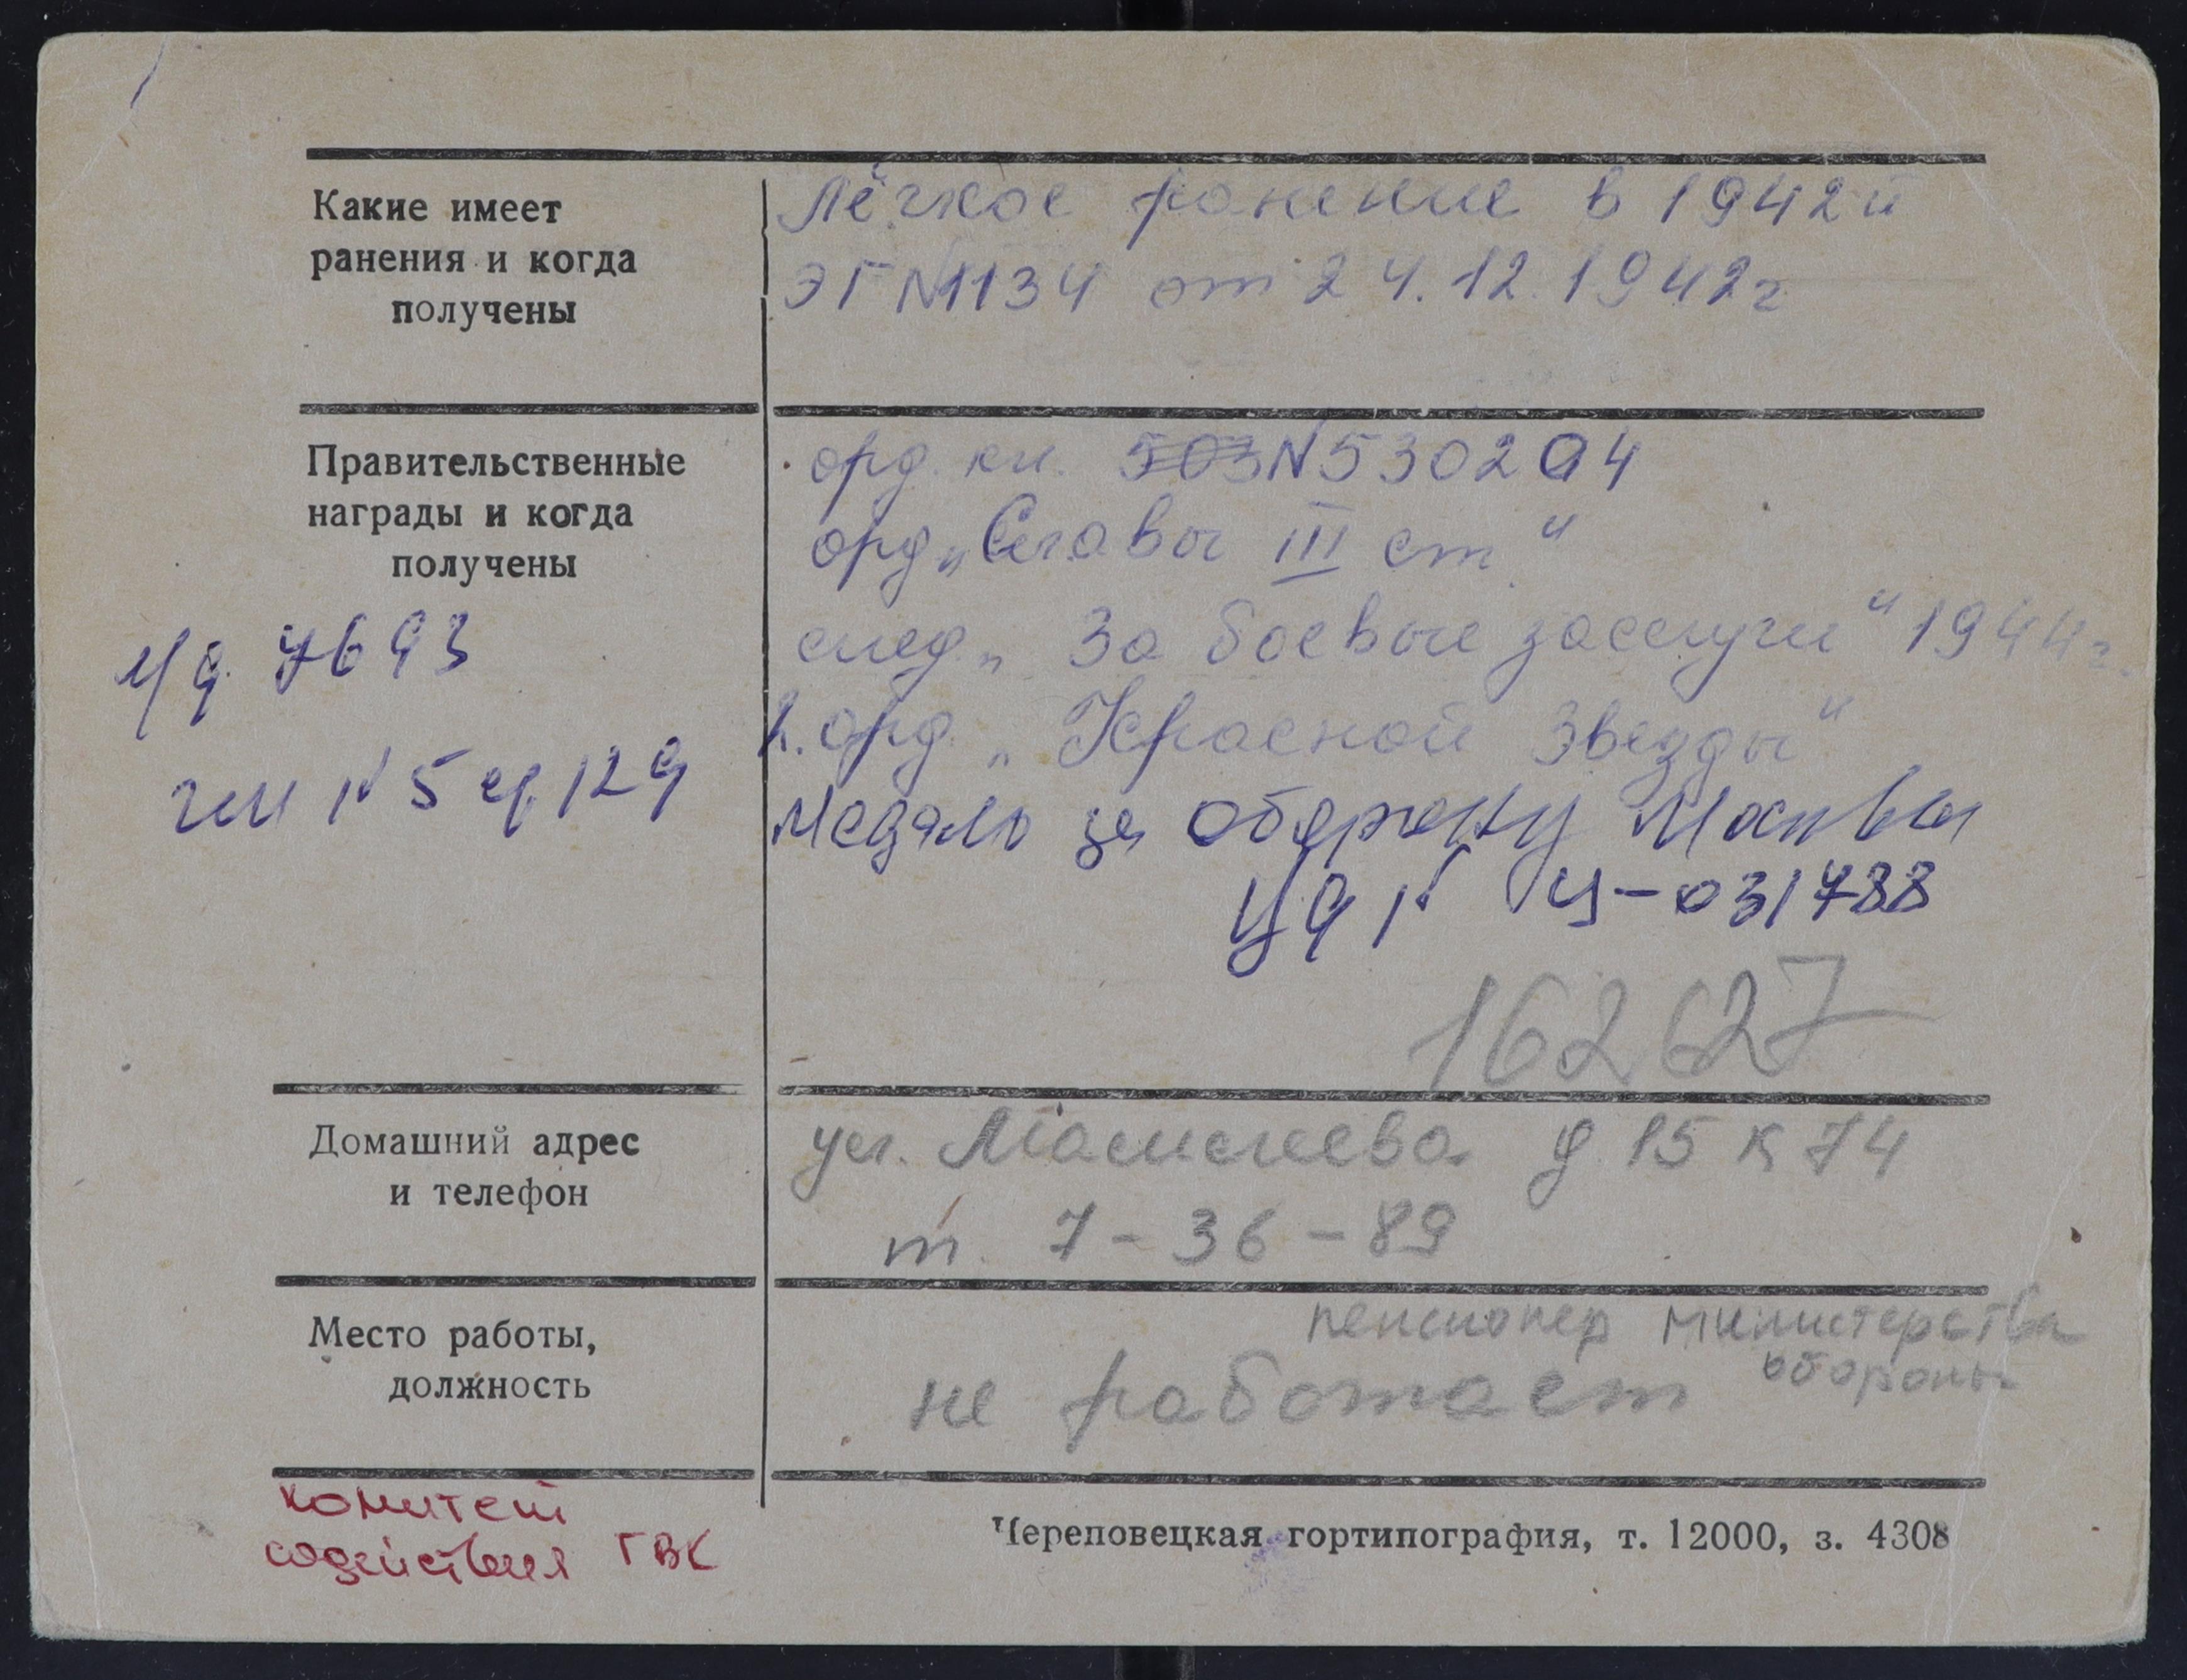 Какие имеет
ранения и когда
получены
Лёгкое ранение в 1942й
ЭГ №1134 от 24.12.1942г
Правительственные
награды и когда
получены
орд. кн. 503 N 530204
орд. „Славы III ст."
мед. „За боевые заслуги" 1944г.
2. орд. „Красной Звезды"
Медаль за оборону Москвы
Уд № Ц-031788
162627
7693
№ 5 129
Домашний адрес
и телефон
ул. Мамлеева д. 15 к 74
т. 7-36-89
Место работы,
должность
пенсионер министерства
обороны
не работает
комитет
содействия ГВК
Череповецкая гортипография, т. 12000, з. 4308